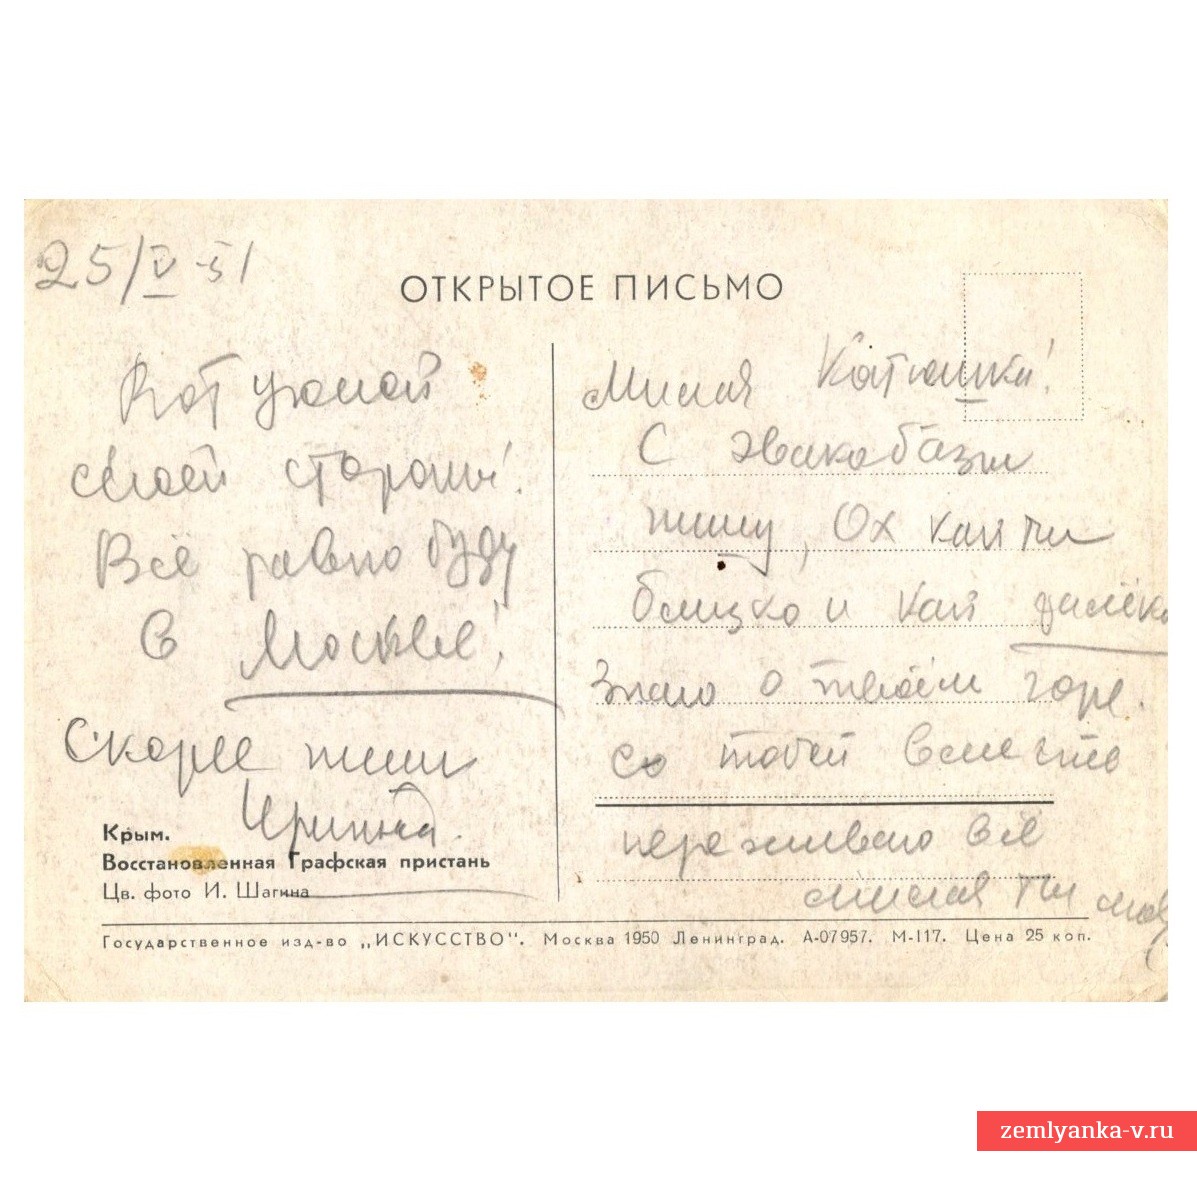 25/V-51
ОТКРЫТОЕ ПИСЬМО
Вот южной
своей стороны!
Всё равно буду
в Москве!
Скорее пиши
Иринка.
Милая Катюшка!
С эвакобазы
пишу, Ох как ты
близко и как далёко
Знаю о твоём горе.
со тобой вместе
переживаю всё
милая ты моя
Крым.
Восстановленная Графская пристань
Цв. фото И. Шагина
Государственное изд-во „ИСКУССТВО". Москва 1950 Ленинград. А-07957. М-117. Цена 25 коп.
zemlyanka-v.ru